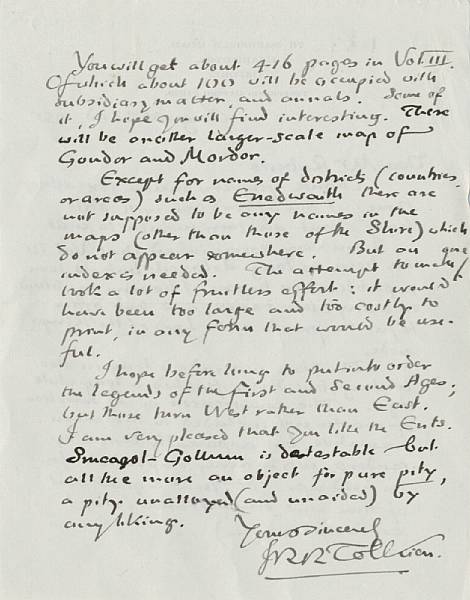 You will get about 416 pages in Vol III.
Of which about 100 will be occupied with
subsidiary matter, and annals. Some of
it, I hope you will find interesting. There
will be another larger-scale map of
Gondor and Mordor.
Except for names of districts (countries
or areas) such as Enedwaith there are
not supposed to be any names in the
maps (other than those of the Shire) which
do not appear somewhere. But an
index is needed. The attempt to make one
took a lot of fruitless effort: it would
have been too large and too costly to
print, in any form that would be use-
ful.
I hope before long to put into order
the legends of the First and Second Ages;
but those turn West rather than East.
I am very pleased that you like the Ents.
Smeagol-Gollum is detestable – but
all the more an object for pure pity,
a pity unalloyed (and unaided) by
any liking.
Yours sincerely
JRR Tolkien.